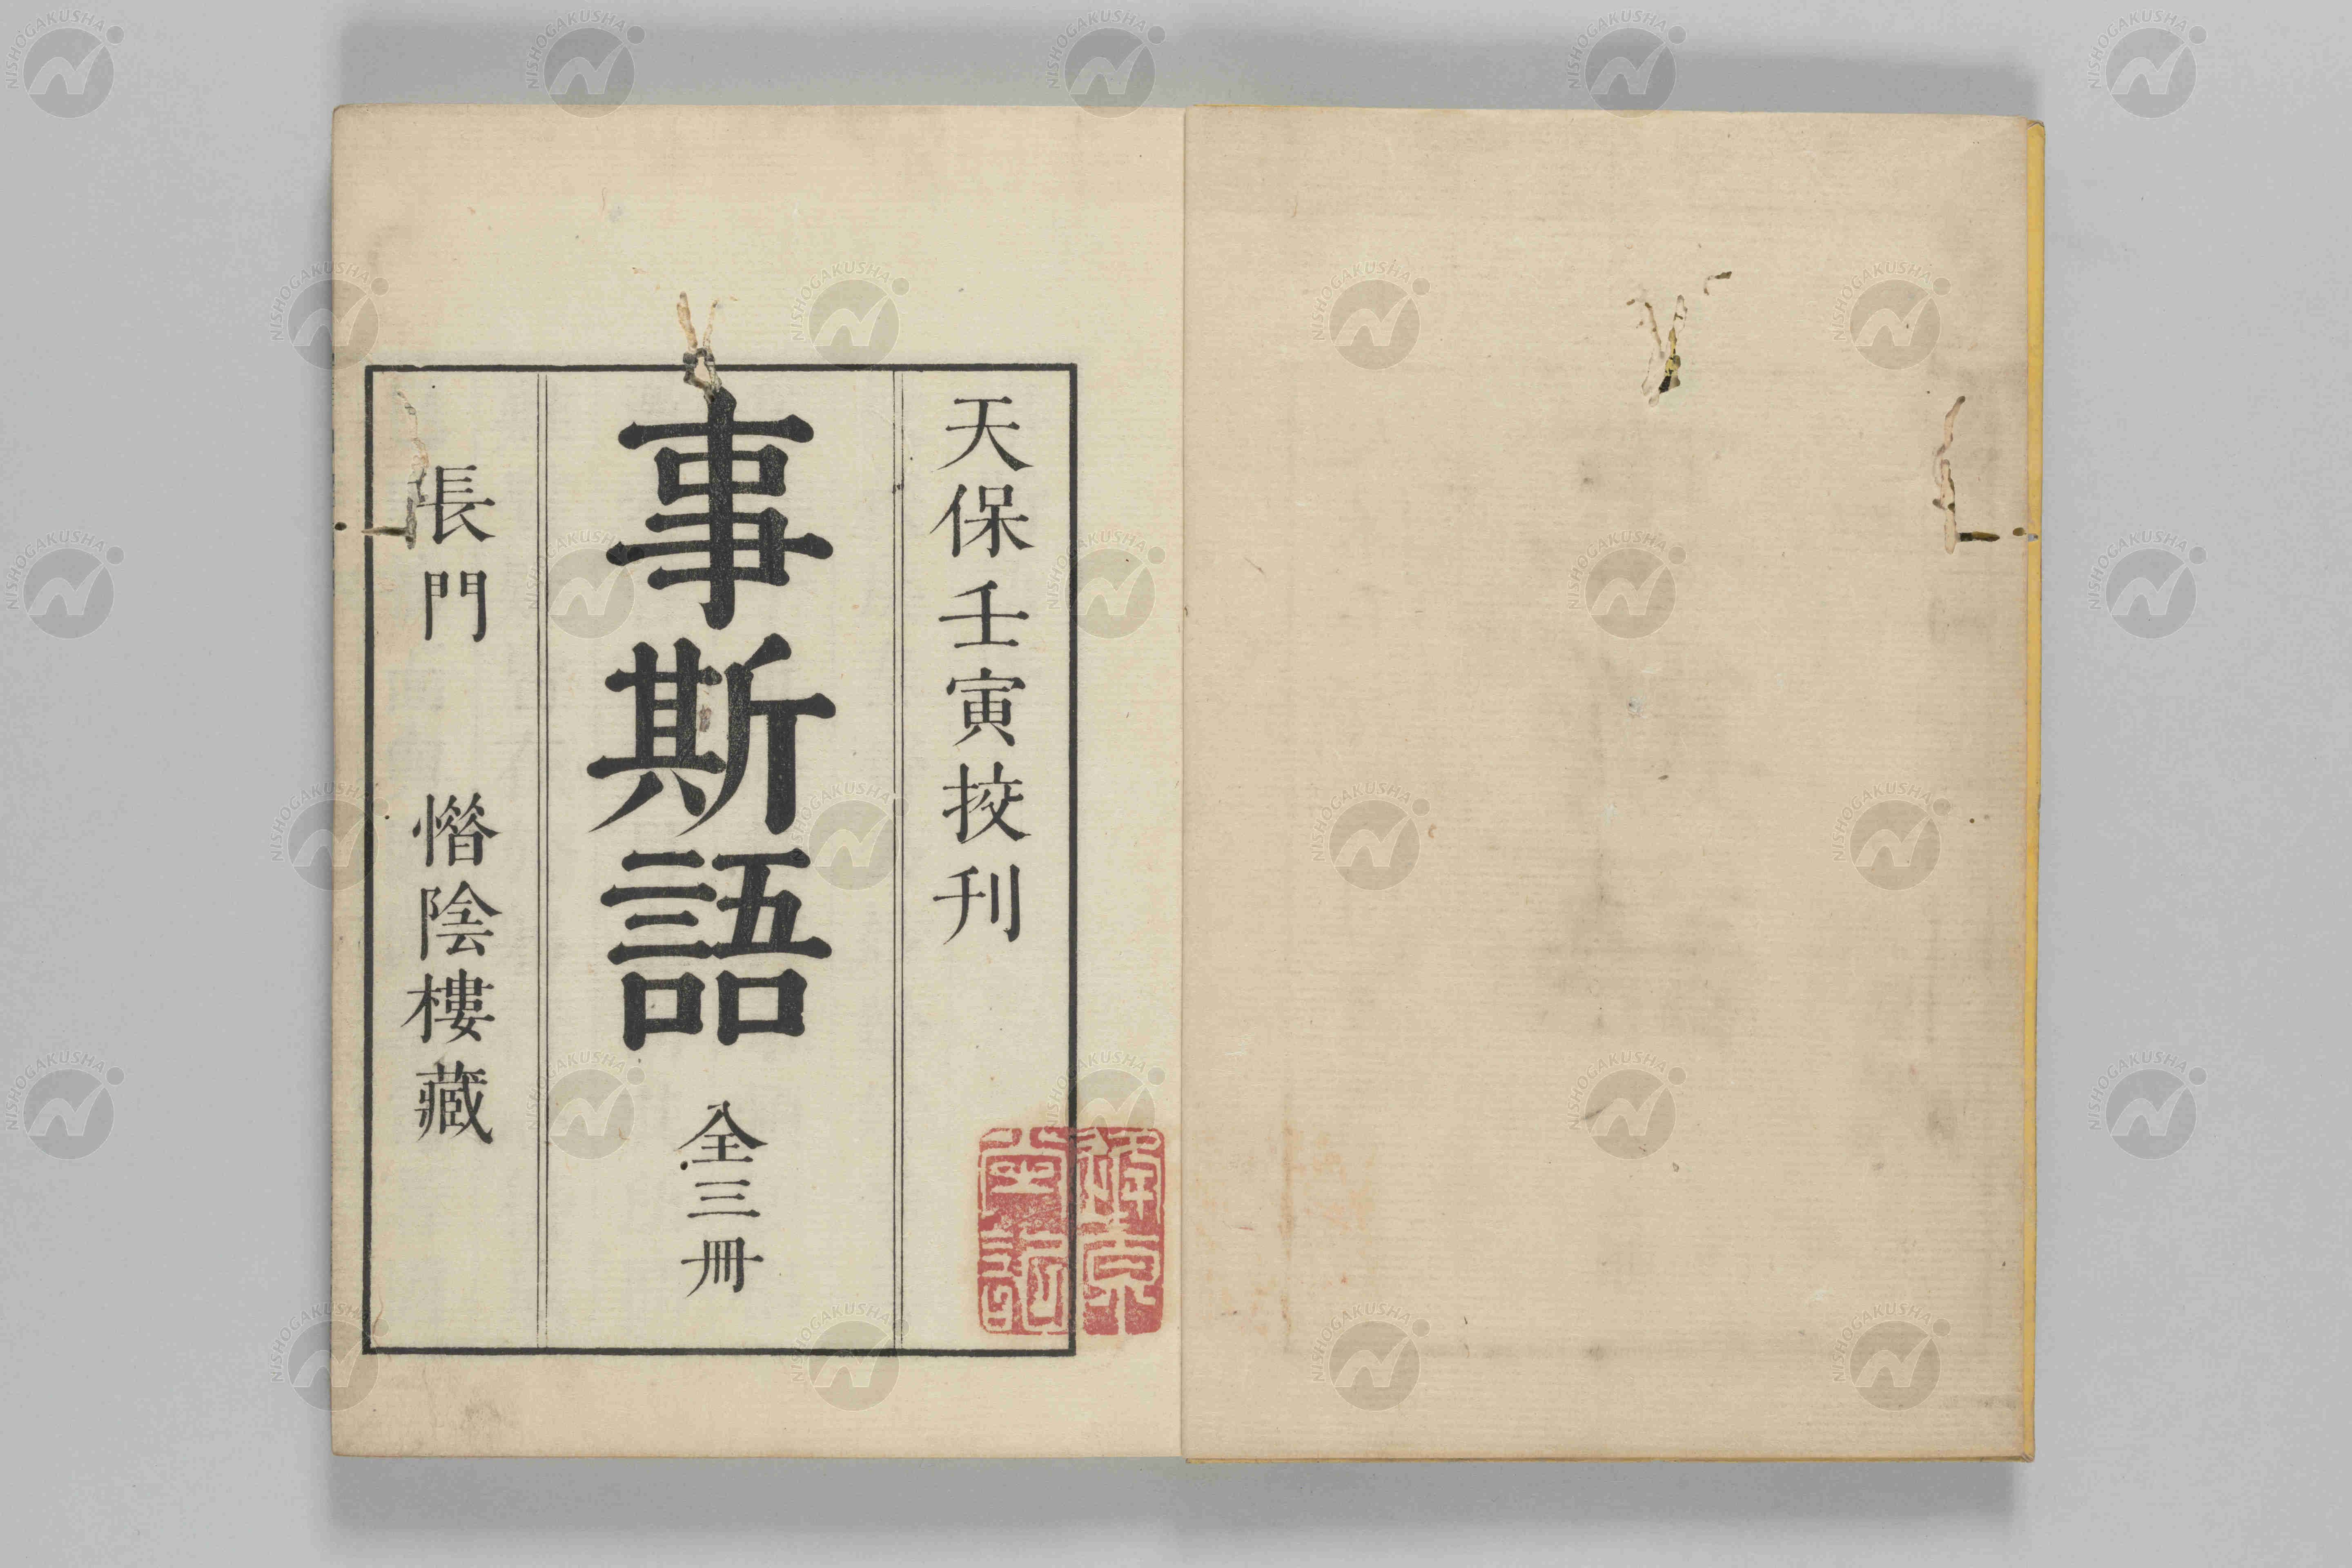 天保壬寅挍刊
事斯語 全三冊
長門 憯陰樓藏
NISHOGAKUSHA